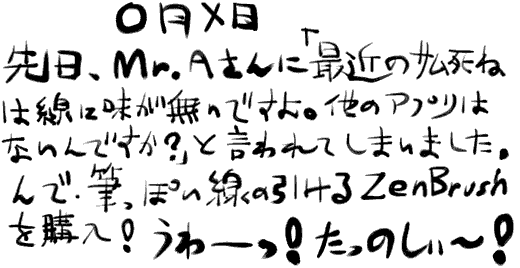 〇月×日
先日、Mr.Aさんに「最近のサムネ
は線に味が無いですよ。他のアプリは
ないんですか?」と言われてしまいました。
んで・筆っぽい線の引けるZenBrush
を購入!うわーっ!たっのしぃ〜!